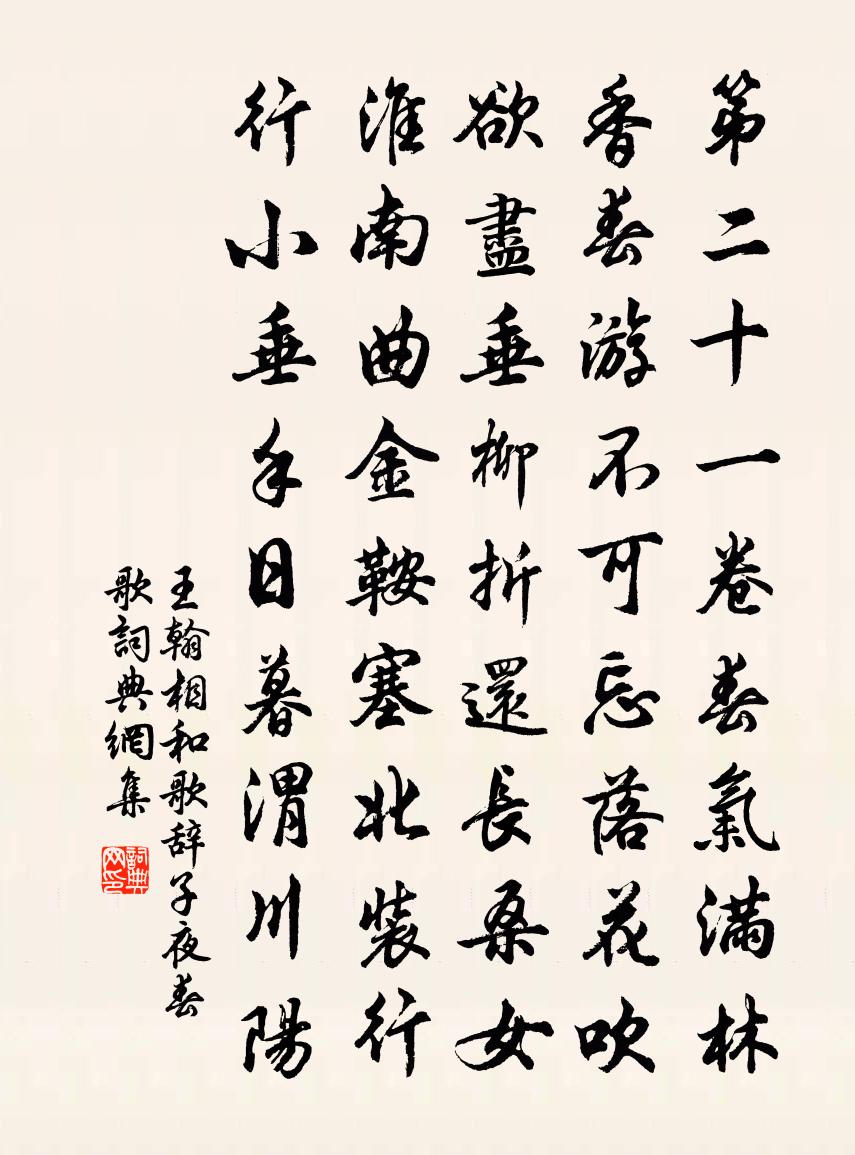 第二十一卷春氣滿林
香春游不可忘落花吹
欲盡垂柳折還長桑女
淮南曲金鞍塞北裝行
行小垂手日暮渭川陽
王翰相和歌辞子夜春
歌詞典網集
詞典網印